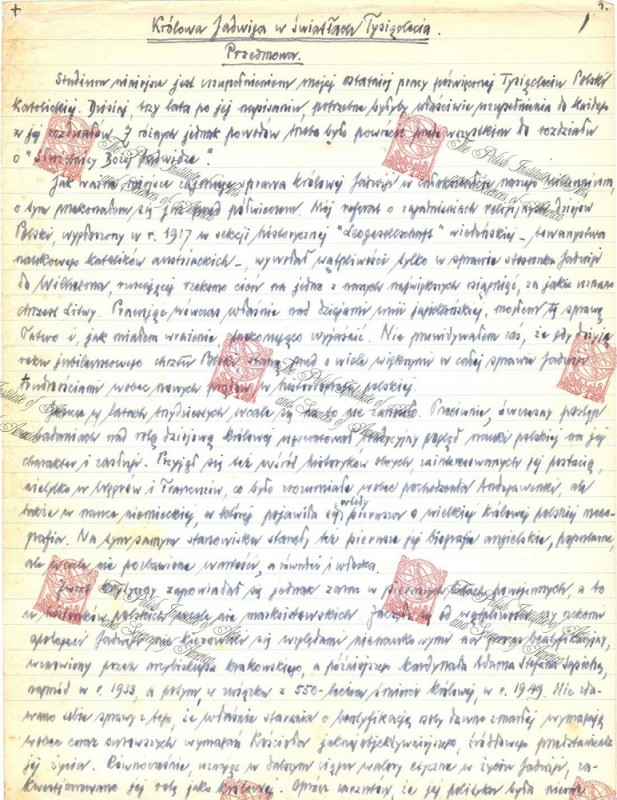 +
5.
Królowa Jadwiga w światłach Tysiąclecia.
Przedmowa.
Studium niniejsze jest uzupełnieniem mojej ostatniej pracy poświęconej Tysiącleciu Polski
Katolickiej. Dzisiaj, trzy lata po jej napisaniu, potrzebne byłyby właściwie uzupełnienia do każdego
z jej rozdziałów. Z różnych jednak powodów trzeba było powrócić przede wszystkim do rozdziału
o "Służebnicy Bożej Jadwidze".
Jak ważne miejsce zajmuje sprawa królowej Jadwigi w całokształcie naszego Millennium,
o tym przekonałem się już przed półwieczem. Mój referat o zagadnieniach religijnych dziejów
Polski, wygłoszony w r. 1917 w sekcji historycznej "Leogesellschaft" wiedeńskiej, towarzystwa
naukowego katolików austriackich, wywołał wątpliwości tylko w sprawie stosunku Jadwigi
do Wilhelma, rzucającej rzekomo cień na jedno z naszych największych osiągnięć, za jakie uznano
chrzest Litwy. Pracując wówczas właśnie nad dziejami unii jagiellońskiej, mogłem tę sprawę
łatwo i, jak miałem wrażenie, przekonująco wyjaśnić. Nie przewidywałem zaś, że gdy dożyję
roku jubileuszowego chrztu Polski, stanę przed o wiele większymi w całej sprawie Jadwigi
trudnościami wobec nowych prądów w historiografii polskiej.
Jeszcze w latach trzydziestych wcale się na to nie zanosiło. Przeciwnie, ówczesny postęp
w badaniach nad rolą dziejową królowej ugruntował tradycyjny pogląd nauki polskiej na jej
charakter i zasługi. Przyjął się też wśród historyków obcych, zainteresowanych jej postacią,
nietylko u Węgrów i Francuzów, co było zrozumiałe wobec pochodzenia Andegawenki, ale
także w nauce niemieckiej, w której pojawiła się wtedy pierwsza o wielkiej królowej polskiej mono-
grafia. Na tym samym stanowisku stanęła też pierwsza jej biografia angielska, popularna,
ale wcale nie pozbawiona wartości, a również i włoska.
Zwrot zapowiadał się jednak zaraz w pierwszych latach powojennych, a to
u historyków polskich wcale nie marksistowskich. Zaczęło się od wątpliwości, czy rzekomi
apologeci Jadwigi nie kierowali się względami nienaukowymi na proces beatyfikacyjny,
wznowiony przez arcybiskupa krakowskiego, a późniejszego kardynała Adama Stefana Sapiehę,
najpierw w r. 1933, a potym, w związku z 550-leciem śmierci królowej, w r. 1949. Nie zda-
wano sobie sprawy z tego, że właśnie starania o beatyfikację osoby dawno zmarłej wymagają
wobec coraz surowszych wymagań Kościoła jaknajobjektywniejszego, źródłowego przedstawienia
jej życia. Równocześnie, uznając w dalszym ciągu walory etyczne w życiu Jadwigi, za-
kwestjonowano jej rolę jako królowej. Oprócz zarzutów, że jej polityka była nieraz
The Polish Institute of Arts
and Sciences of America